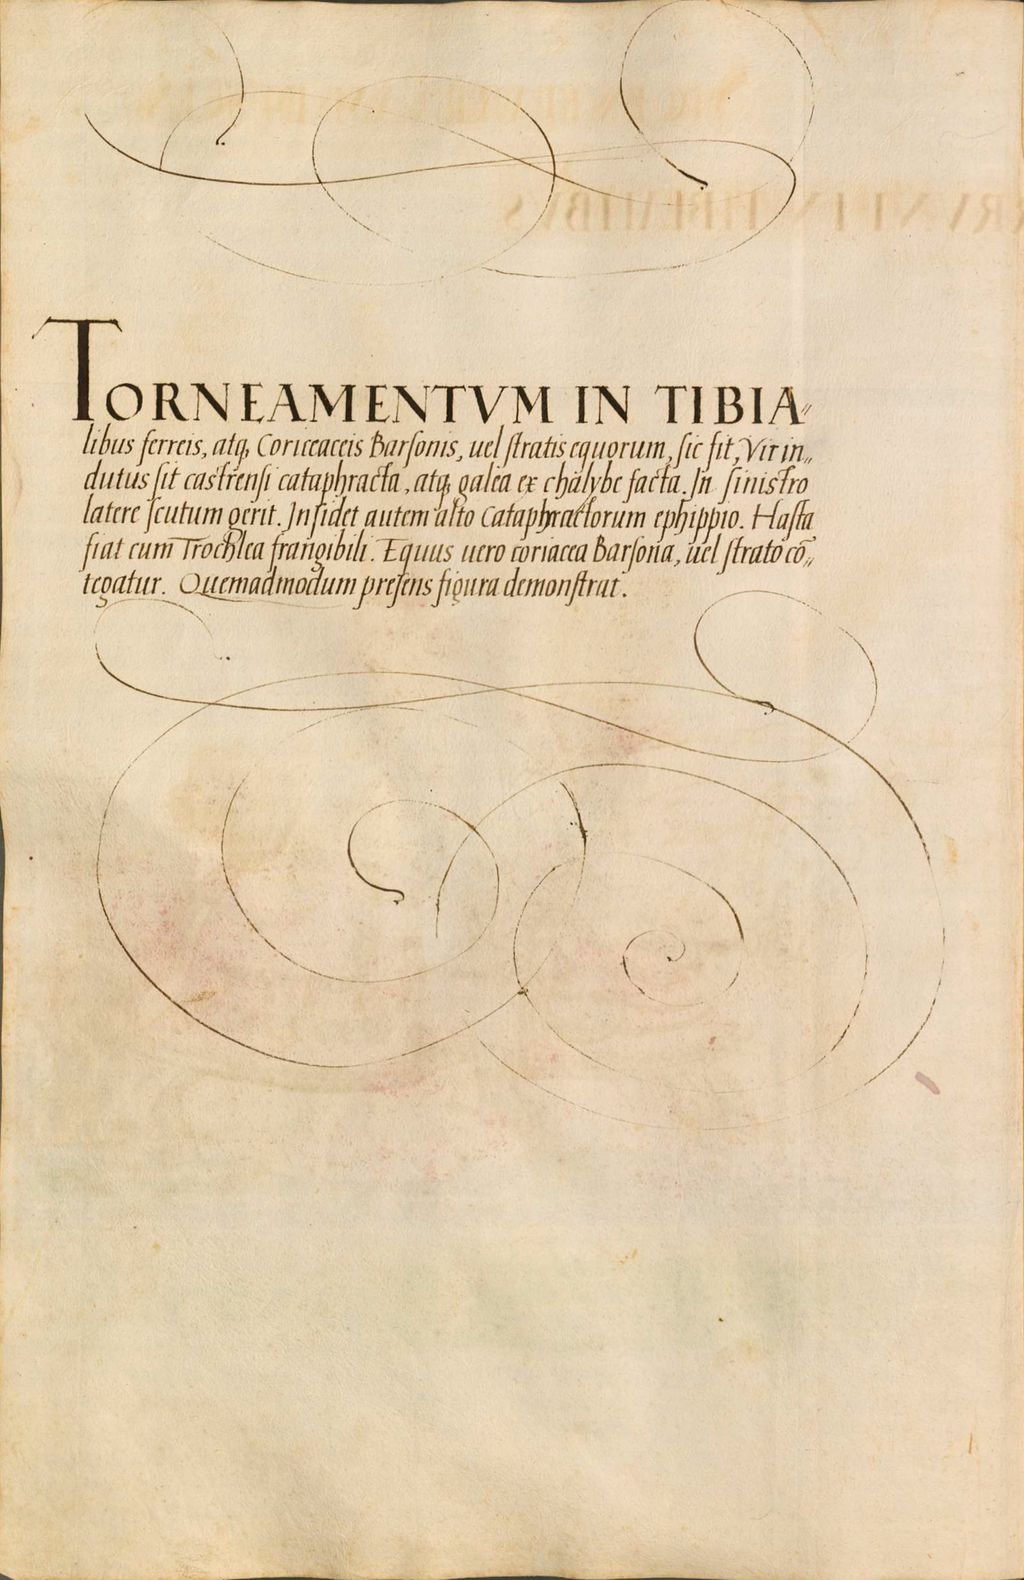 TORNEAMENTVM IN TIBIA〃
libus ferreis, atq, Coriceaceis Barsonis, uel stratis equorum, sic fit, Vir in〃
dutus sit castrensi cataphracta, atq, galea ex chalybe facta. In sinistro
latere scutum gerit. Insidet autem alto Cataphractorum ephippio. Hasta
fiat cum Trochlea frangibili. Equus uero coriacea Barsona, uel strato cō〃
tegatur. Quemadmodum presens figura demonstrat.